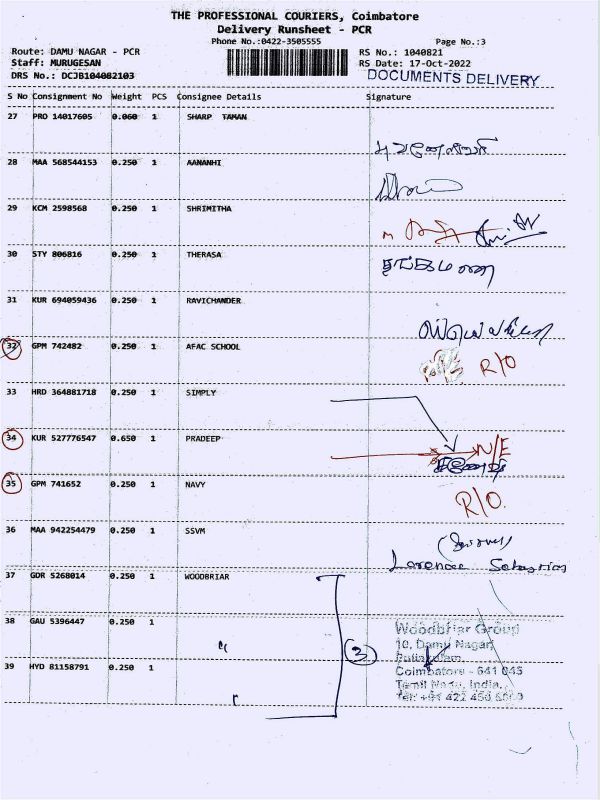 THE PROFESSIONAL COURIERS, Coimbatore
Delivery Runsheet - PCR
Phone No.:0422-3505555
Page No.:3
Route: DAMU NAGAR - PCR
RS No.: 1040821
Staff: MURUGESAN
RS Date: 17-Oct-2022
DRS No.: DCJB104082103
DOCUMENTS DELIVERY
S No Consignment No Weight PCS Consignee Details Signature
27 PRO 14017605 0.060 1 SHARP TAMAN
28 MAA 568544153 0.250 1 AANANHI
29 KCM 2598568 0.250 1 SHRIMITHA
30 STY 806816 0.250 1 THERASA
31 KUR 694059436 0.250 1 RAVICHANDER
32 GPM 742482 0.250 1 AFAC SCHOOL R/O
33 HRD 364881718 0.250 1 SIMPLY
34 KUR 527776547 0.650 1 PRADEEP N/E
35 GPM 741652 0.250 1 NAVY R/O.
36 MAA 942254479 0.250 1 SSVM
37 GDR 5268014 0.250 1 WOODBRIAR
38 GAU 5396447 0.250 1 "
39 HYD 81158791 0.250 1
(3)
Woodbriar Group
10, Damu Nagar,
Coimbatore - 641 045
Tamil Nadu, India.